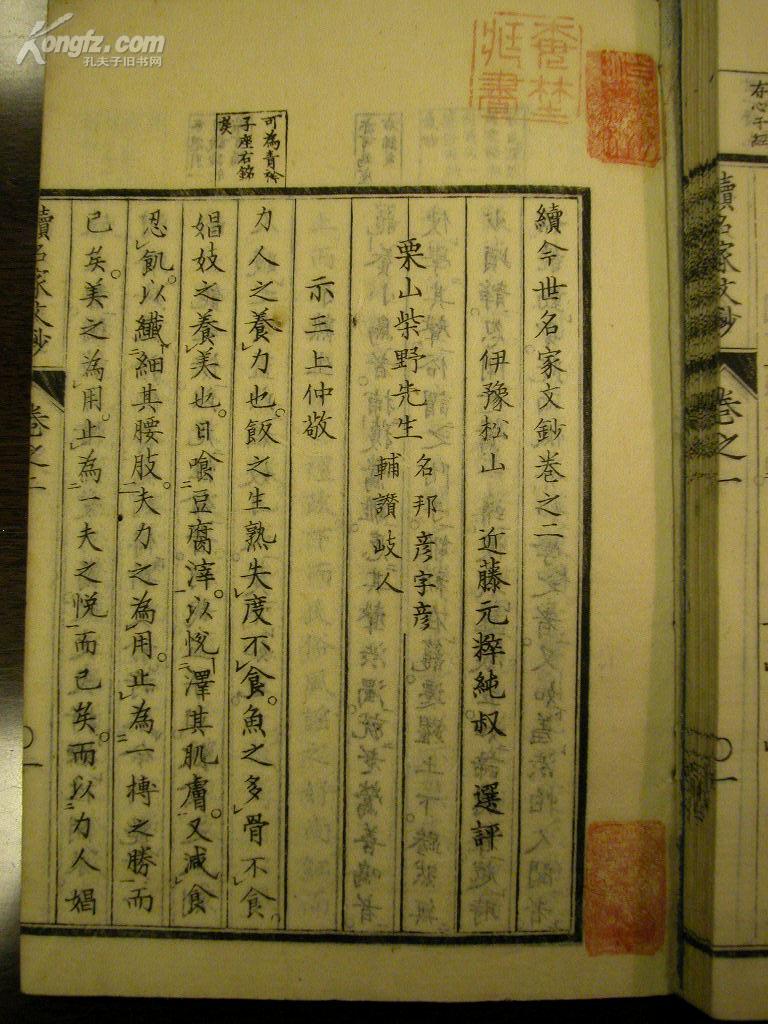 Kongfz.com
孔夫子旧书网
可為青衿
子座右銘
矣
續今世名家文鈔卷之二
伊豫松山 近藤元粹純叔 選評
栗山柴野先生 名邦彦字彦
輔讚岐人
示三上仲敬
力人之養力也。飯之生熟失度不食。魚之多骨不食。
娼妓之養美也。日喰豆腐滓。以悦澤其肌膚。又減食
忍飢。以纖細其腰肢。夫力之為用。止為一搏之勝而
已矣。美之為用。止為一夫之悦而已矣。而以力人娼
續名家文鈔
卷之二
〇一
存心于経
續名家文鈔
卷之一
〇一